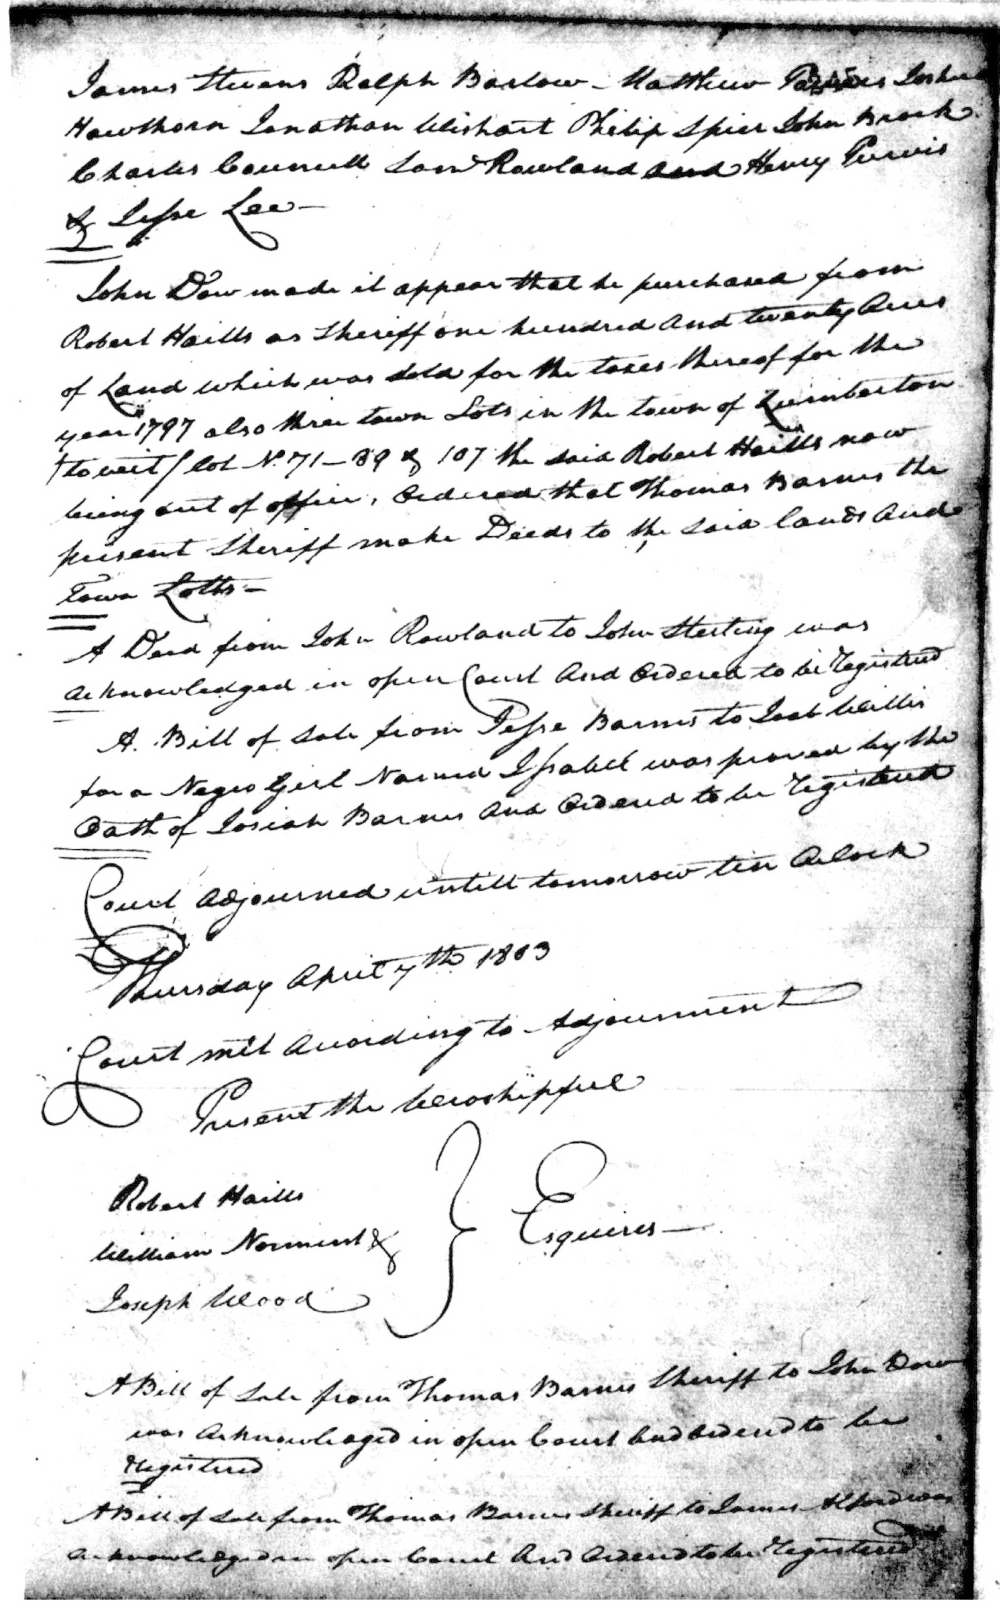 James Stevens Ralph Barlow - Matthew Joshua
Hawthorn Jonathan Wishart Philip Spier John Brock
Charles Councill Saml Rowland and Henry Purvis
& Jesse Lee -
John Dow made it appear that he purchased from
Robert Hails as Sheriff one hundred and twenty Acres
of Land which was sold for the taxes thereof for the
year 1797 also three town Lots in the town of Lumberton
(towit) lot No. 71 - 89 & 107 the said Robert Hails now
being out of office, Ordered that Thomas Barnes the
present Sheriff make Deeds to the said lands and
Town Lotts -
A Deed from John Rowland to John Sterling was
acknowledged in open Court and Ordered to be registred
A. Bill of Sale from Jesse Barnes to Joab Willis
for a Negro Girl Named Isabell was proved by the
Oath of Josiah Barnes and Ordered to be registered
Court adjourned untill tomorrow ten Oclock
Thursday April 7th 1803
Court met according to Adjournment
Present the Worshipfull
Robert Hails
William Norment &
Joseph Wood
Esquires -
A Bill of Sale from Thomas Barnes Sheriff to John Dow
was acknowleaged in open Court and ordered to be
registered
A Bill of Sale from Thomas Barnes Sheriff to James Alford was
acknowledged in open Court and Ordered to be registered